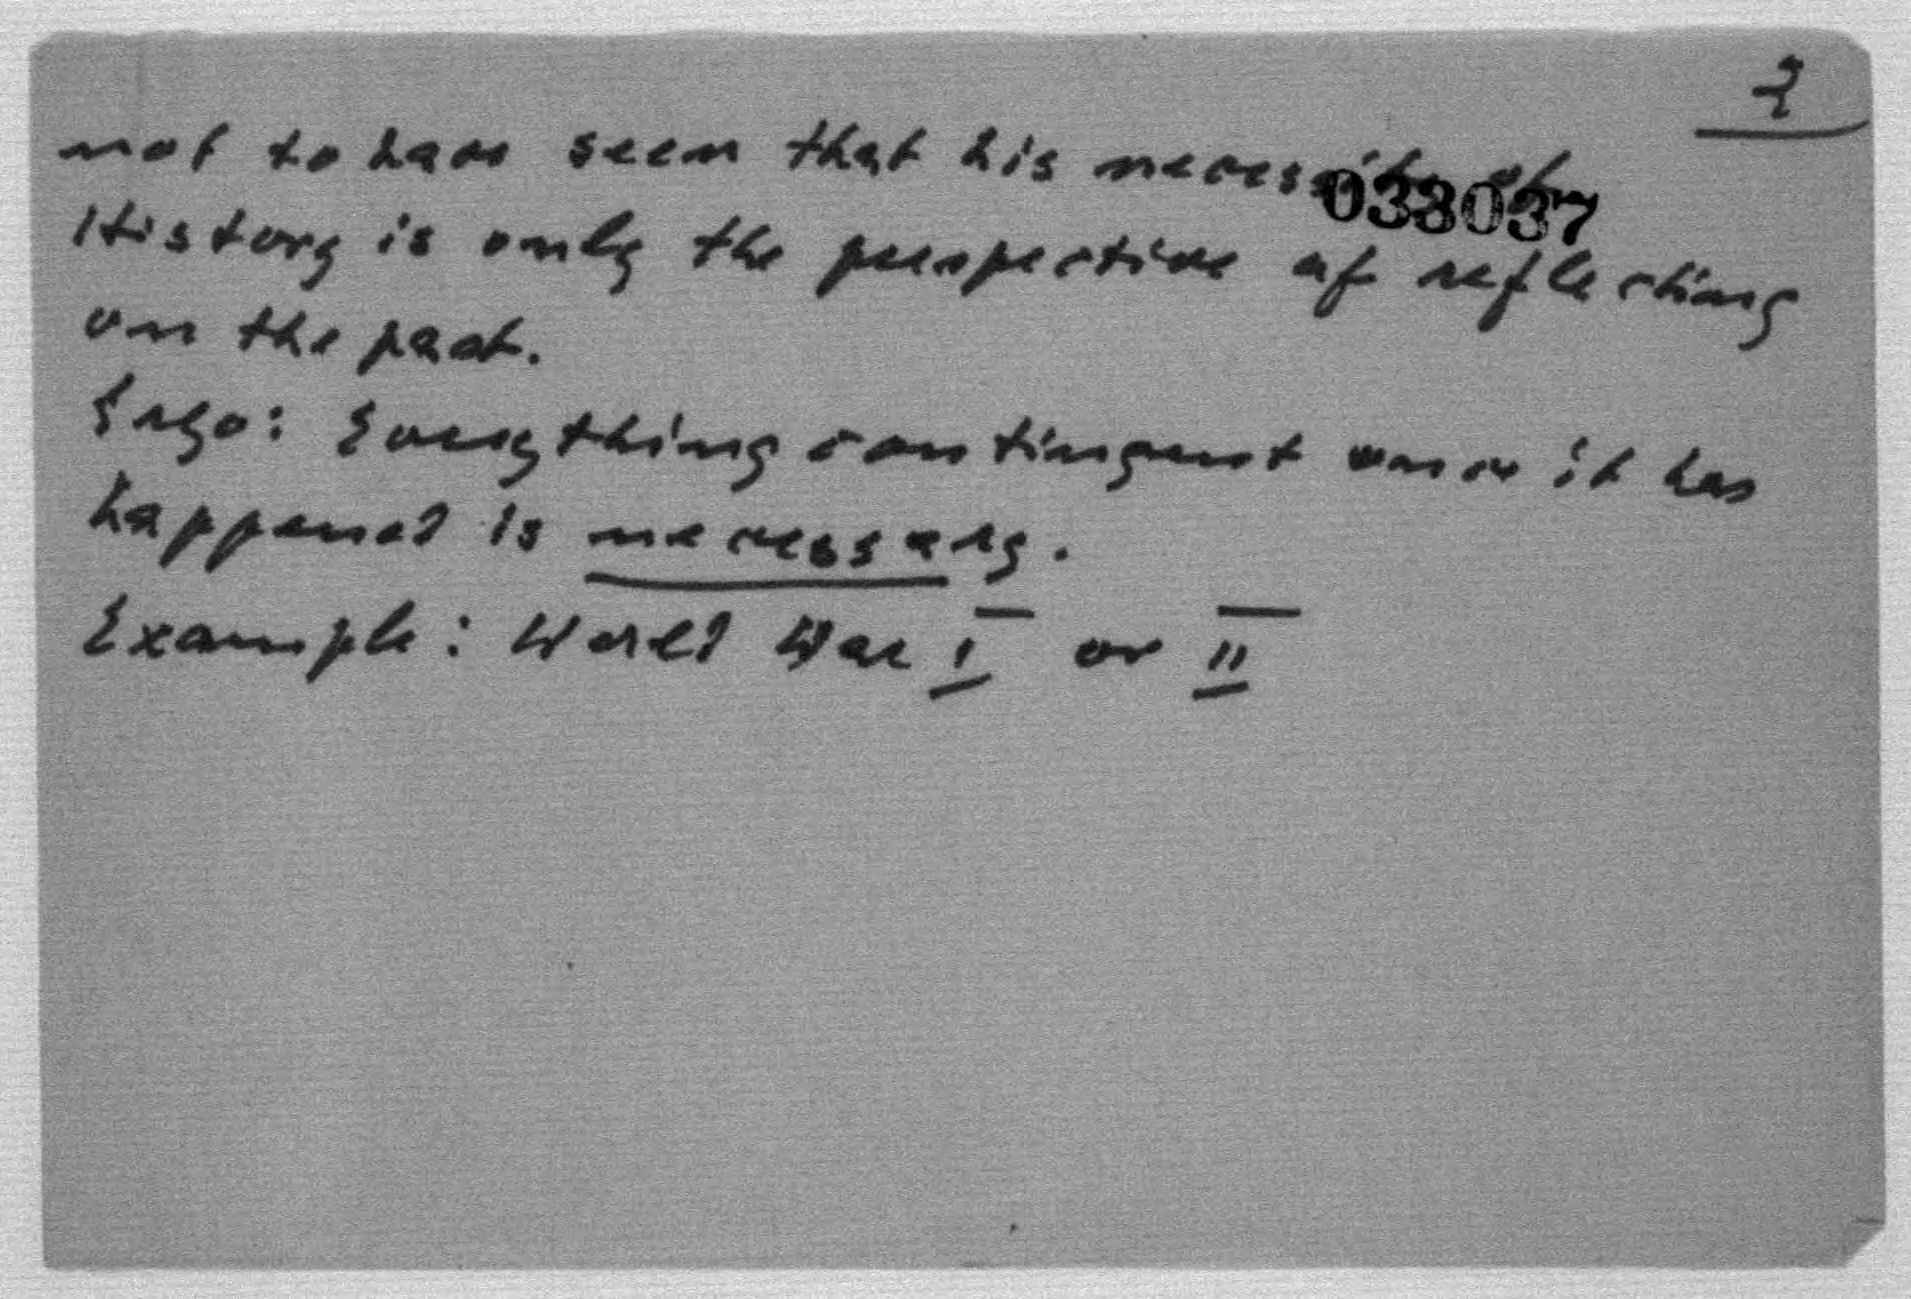 2
not to have seen that his necessity of
033037
History is only the perspective of reflecting
on the past.
Ergo: Everything contingent once it has
happened is necessary.
Example: World War I or II